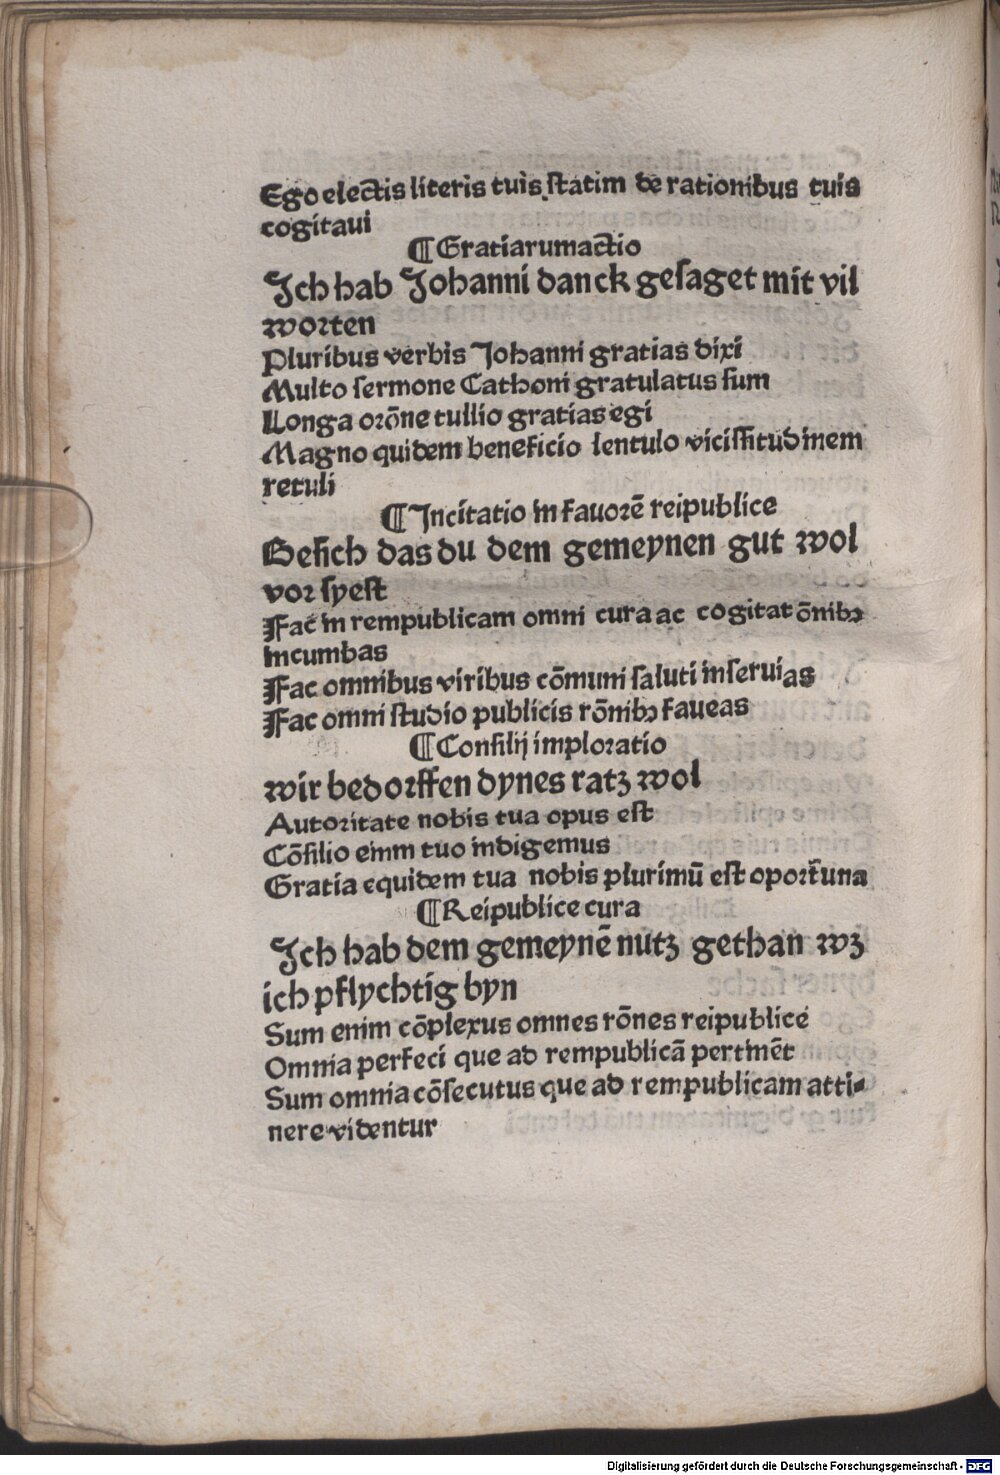 Ego electis literis tuis statim de rationibus tuis
cogitaui
¶ Gratiarumactio
Ich hab Johanni danck gesaget mit vil
worten
Pluribus verbis Johanni gratias dixi
Multo sermone Cathoni gratulatus sum
Longa orōne tullio gratias egi
Magno quidem beneficio lentulo vicissitudinem
retuli
¶ Incitatio in fauorē reipublice
Besich das du dem gemeynen gut wol
vor syest
Fac in rempublicam omni cura ac cogitatōnibꝫ
incumbas
Fac omnibus viribus cōmuni saluti inseruias
Fac omni studio publicis rōnibꝫ faueas
¶ Consilij imploratio
wir bedorffen dynes ratz wol
Autoritate nobis tua opus est
Cōsilio enim tuo indigemus
Gratia equidem tua nobis plurimū est oportuna
¶ Reipublice cura
Ich hab dem gemeynē nutz gethan wz
ich pflychtig byn
Sum enim cōplexus omnes rōnes reipublice
Omnia perfeci que ad rempublicā pertinēt
Sum omnia cōsecutus que ad rempublicam atti-
nere videntur
Digitalisierung gefördert durch die Deutsche Forschungsgemeinschaft - DFG